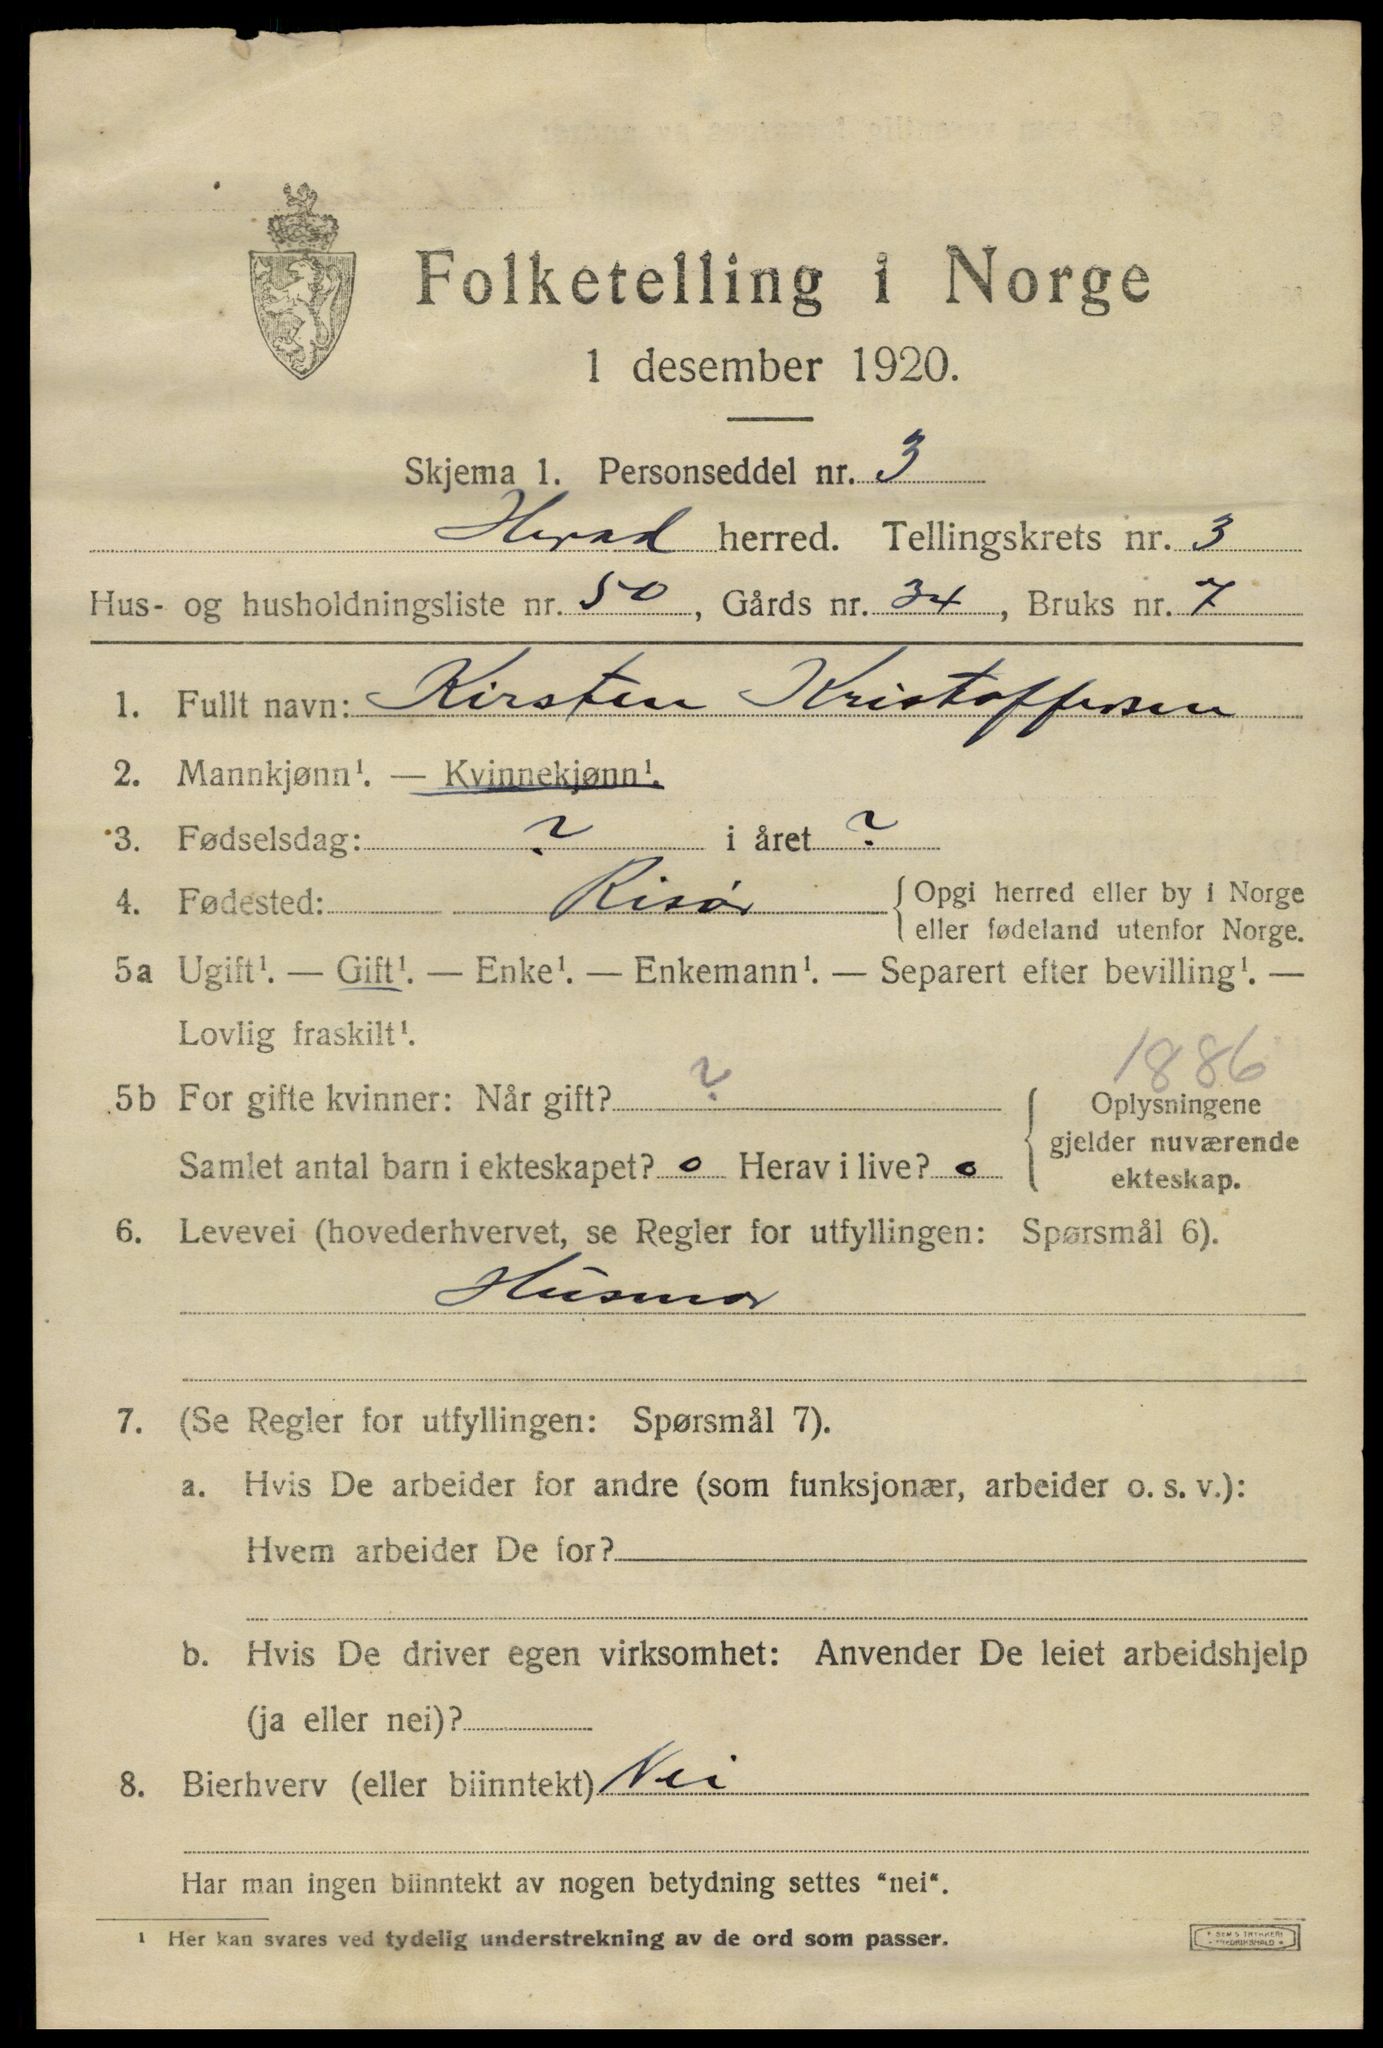 Folketelling i Norge
1 desember 1920.
Skjema 1. Personseddel nr. 3
Herad herred. Tellingskrets nr. 3
Hus- og husholdningsliste nr. 50, Gårds nr. 34, Bruks nr. 7
1. Fullt navn: Kirsten Kristoffersen
2. Mannkjønn¹. — Kvinnekjønn¹.
3. Fødselsdag: ? i året ?
4. Fødested: Risør { Opgi herred eller by i Norge
eller fødeland utenfor Norge.
5a Ugift¹. — Gift¹. — Enke¹. — Enkemann¹. — Separert efter bevilling¹. —
Lovlig fraskilt¹.
1886
5b For gifte kvinner: Når gift? ?
Samlet antal barn i ekteskapet? 0 Herav i live? 0
{ Oplysningene
gjelder nuværende
ekteskap.
6. Levevei (hovederhvervet, se Regler for utfyllingen: Spørsmål 6).
Husmor
7. (Se Regler for utfyllingen: Spørsmål 7).
a. Hvis De arbeider for andre (som funksjonær, arbeider o. s. v.):
Hvem arbeider De for?
b. Hvis De driver egen virksomhet: Anvender De leiet arbeidshjelp
(ja eller nei)?
8. Bierhverv (eller biinntekt) Nei
Har man ingen biinntekt av nogen betydning settes "nei".
¹ Her kan svares ved tydelig understrekning av de ord som passer.